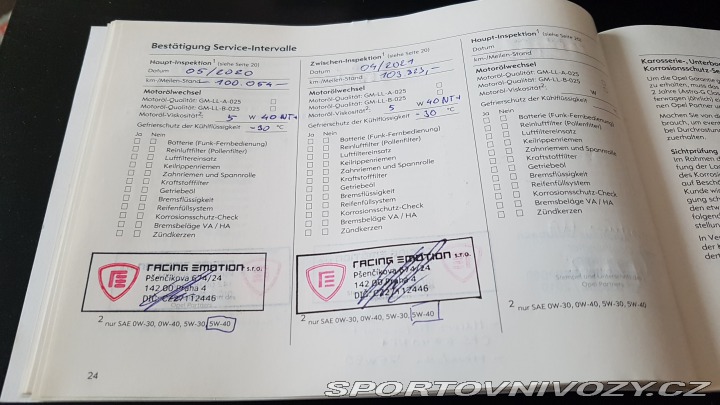 Bestätigung Service-Intervalle
Haupt-Inspektion¹ (siehe Seite 20)
Datum 05/2020
km-/Meilen-Stand 100.054,-
Motorölwechsel
Motoröl-Qualität: GM-LL-A-025
Motoröl-Qualität: GM-LL-B-025
Motoröl-Viskosität²: 5 W 40 NT+
Gefrierschutz der Kühlflüssigkeit -30 °C
Ja Nein
Batterie (Funk-Fernbedienung)
Reinluftfilter (Pollenfilter)
Luftfiltereinsatz
Keilrippenriemen
Zahnriemen und Spannrolle
Kraftstofffilter
Getriebeöl
Bremsflüssigkeit
Reifenfüllsystem
Korrosionsschutz-Check
Bremsbeläge VA / HA
Zündkerzen
RACING EMOTION s.r.o.
Pšenčíkova 674/24
142 00 Praha 4
DIČ CZ27112446
² nur SAE 0W-30, 0W-40, 5W-30, 5W-40
24
Zwischen-Inspektion¹ (siehe Seite 20)
Datum 04/2021
km-/Meilen-Stand 103 323,-
Motorölwechsel
Motoröl-Qualität: GM-LL-A-025
Motoröl-Qualität: GM-LL-B-025
Motoröl-Viskosität²: 5 W 40 NT+
Gefrierschutz der Kühlflüssigkeit -30 °C
Ja Nein
Batterie (Funk-Fernbedienung)
Reinluftfilter (Pollenfilter)
Luftfiltereinsatz
Keilrippenriemen
Zahnriemen und Spannrolle
Kraftstofffilter
Getriebeöl
Bremsflüssigkeit
Reifenfüllsystem
Korrosionsschutz-Check
Bremsbeläge VA / HA
Zündkerzen
RACING EMOTION s.r.o.
Pšenčíkova 674/24
142 00 Praha 4
DIČ CZ27112446
² nur SAE 0W-30, 0W-40, 5W-30, 5W-40
Haupt-Inspektion¹ (siehe
Datum
km-/Meilen-Stand
Motorölwechsel
Motoröl-Qualität: GM-LL-A-025
Motoröl-Qualität: GM-LL-B-025
Motoröl-Viskosität²: W
Gefrierschutz der Kühlflüssigkeit
Ja Nein
Batterie (Funk-Fernbedienung)
Reinluftfilter (Pollenfilter)
Luftfiltereinsatz
Keilrippenriemen
Zahnriemen und Spannrolle
Kraftstofffilter
Getriebeöl
Bremsflüssigkeit
Reifenfüllsystem
Korrosionsschutz-Check
Bremsbeläge VA / HA
Zündkerzen
² nur SAE 0W-30, 0W-40, 5W-30, 5W-40
Karosserie-, Unterbo
Korrosionsschutz-S
Um die Opel Garantie
zu erhalten, muss das
2 Jahre (Astra-G C
terwagen jährlich)
nen Opel Partner
Machen Sie von
brauch, um eventu
bei Durchrostung
zu erhalten.
Sichtprüfung
Im Rahmen d
fung der Lac
des Korrosi
schutz auf
Kunde wir
gung sch
den etw
folgt d
und ei
In Ve
der
ros
SPORTOVNIVOZY.CZ